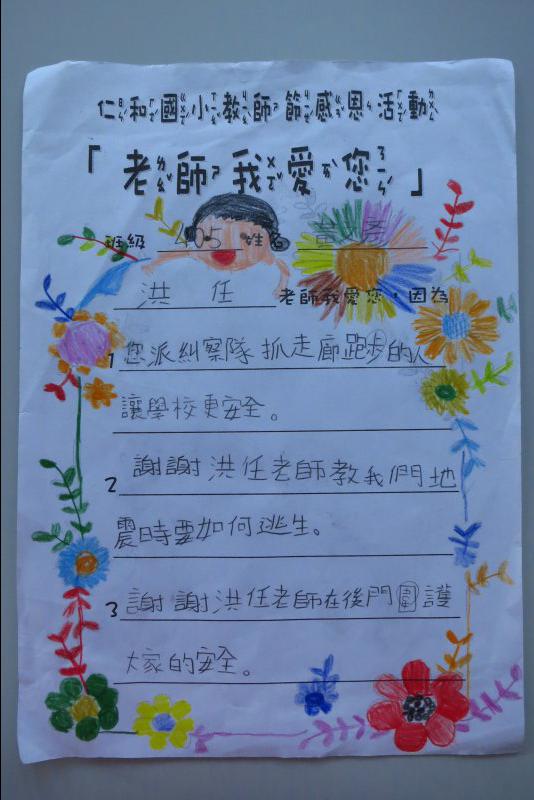 仁和國小教師節感恩活動
「老師我愛您」
班級 405 姓名
洪任 老師我愛您,因為
1 您派糾察隊抓走廊跑步的人
讓學校更安全。
2 謝謝洪任老師教我們地
震時要如何逃生。
3 謝謝洪任老師在後門圍護
大家的安全。